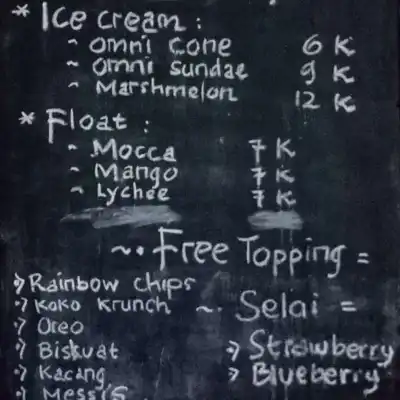 * Ice cream :
~ Omni Cone 6 K
~ Omni Sundae 9 K
~ Marshmelon 12 K
* Float :
~ Mocca 7 K
~ Mango 7 K
~ Lychee 7 K
~. Free Topping =
Rainbow chips
Koko Krunch
Oreo
Biskuat
Kacang
Messis
~. Selai =
Strawberry
Blueberry